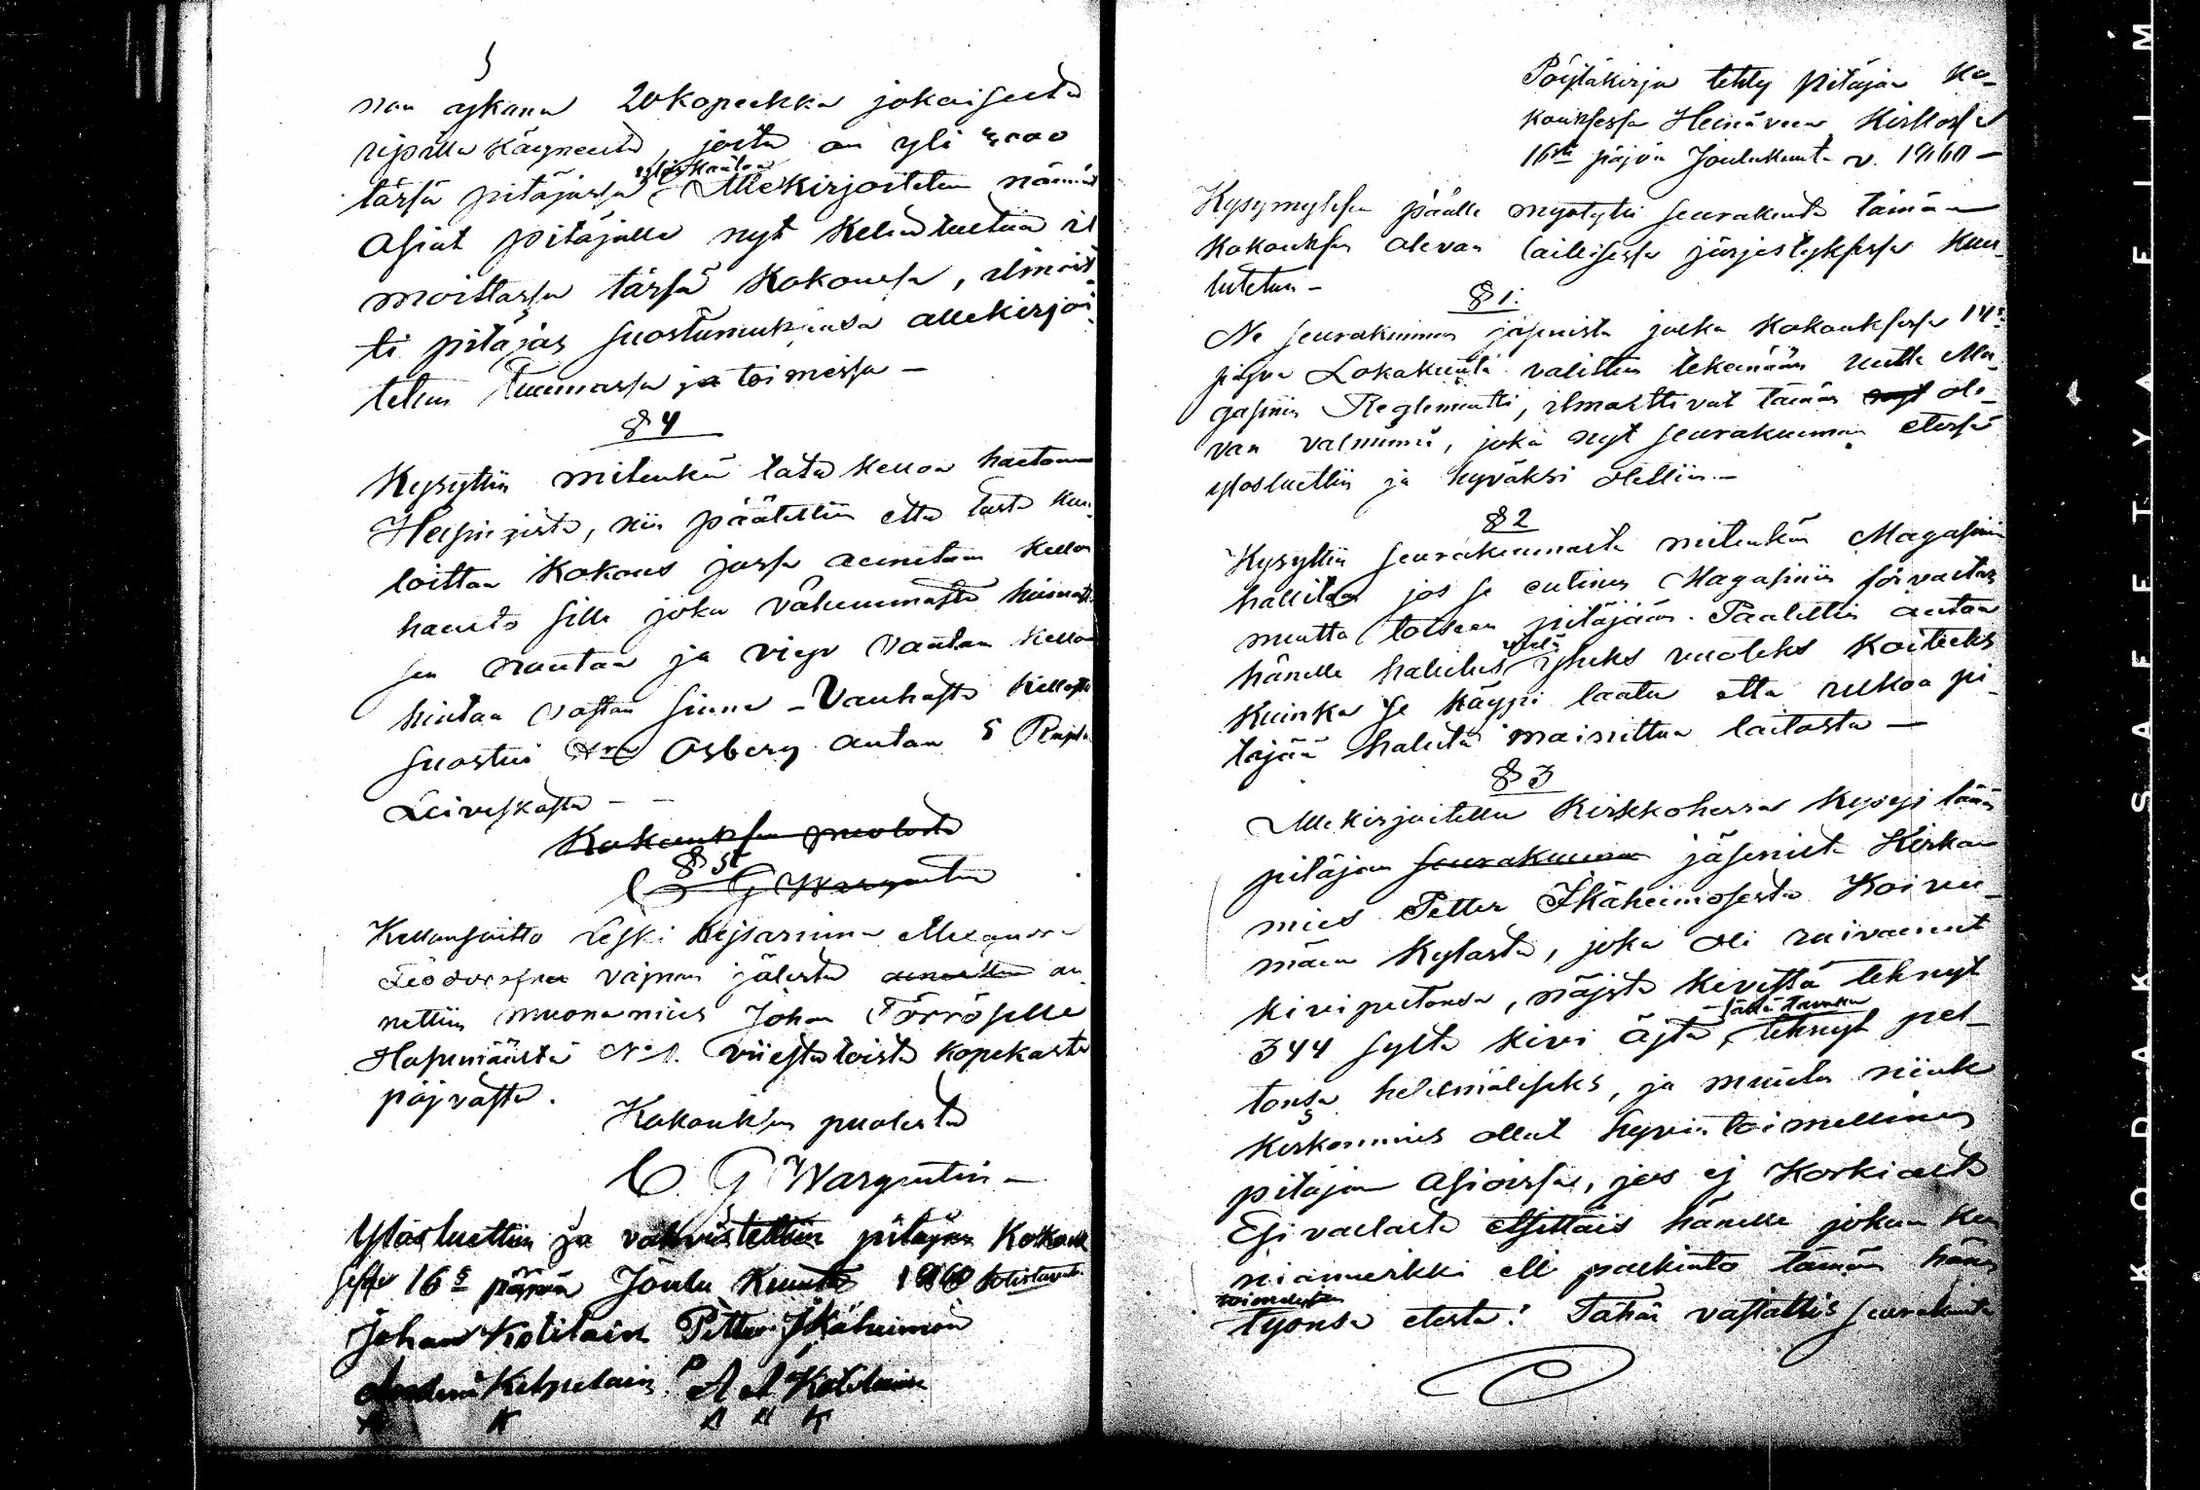 nan ajkana 20 kopeekka jokaisesta
ripillä käyneestä, joita on yli 4000
tässä pitäjässä
ylöskantaa
Allekirjoitetun nämät
Asiat pitäjälle nyt Keluutettua il
moittassa tässä Kokouksessa, ilmoit
ti pitäjäs suostumuksensa allekirjoi
tetun Summassa ja toimessa —
§ 4
Kysyttiin mitenkä tata kelloa haetaan
Helsingistä, niin päätettiin että tästä kuu
loittaa Kokous jossa annetaan kellon
haento sille joka vähemmästä hinnast
sen noutaa ja viepi vanhan kellon
hintaa vastaan sinne — Vanhasta kellosta
suostui Hra Osberg antaa 5 Rupla
Leiviskästä —
Kokouksen puolesta
§ 5
C G Wargentin
Kellonsoitto Leski Kejsarinna Alexandra
Feodorofna vajnaa jälestä annettiin an
nettiin muonamies Johan Törröselle
Hasumäästä No 1. viiestätoista kopekasta
päjvästä.
Kokouksen puolesta
C. G Wargentin —
Ylösluettiin ja vahvistettiin pitäjän Kokouk
sessa 16s päjvä Joulu Kuuta 1860 todistavat
Johan Kotilain Petter Ikäheimon
Kelpelain. A A Kotilain
A K A A K
Pöytäkirja tehty Pitäjän Ko-
kouksessa Heinäveen Kirkossa
16sta päjvä Joulukuuta v. 1860 —
Kysymyksen päälle myötytti seurakunta tämän
Kokouksen olevan laillisessa järjestyksessä Kuu
lutetun —
§ 1.
Ne seurakunnan jäsenistä jotka Kokouksessa 14s
päjvä Lokakuuta valittiin tekemään uutta Ma
gasinin Reglementti, ilmoittivat tämän nyt ole-
van valmiina, joka nyt seurakunnan etessä
ylösluettiin ja hyväksi otettiin —
§ 2
Kysyttiin seurakunnasta mitenkä Magasinin
hallitaan jos se entinen Magasinin förvaltar
muutta toiseen pitäjään. Päätettiin antaa
hänelle halutus
vielä
yheks vuoteks Koiteeks
Kuinka se käypi laatu että ulkoa pi
täjää haluta mainittua laitosta —
§ 3
Allekirjoitettu Kirkkoherra Kysyi tämän
pitäjän seurakunnan jäseniltä Kirkon
mies Petter Ikäheimosesta Koivu
mäen Kylästä, joka oli raivannut
kivipeltonsa, näjstä kivestä tehnyt
344 syltä kivi äjtä,
tehnyt pel
tonsa hedelmäliseks, ja muuta niink
Kirkonmies ollut hyvin toimellinen
pitäjän Asioissa, jos ej Korkiasta
Esivallasta esittäis hänelle jokun kun
niamerkki eli palkinto tämän hänen
työnsä etestä! Tähän vastattiin seurakunta